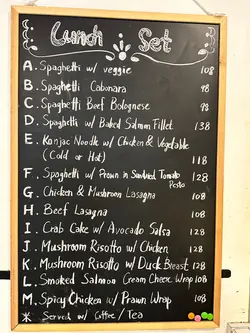 Lunch Set
A. Spaghetti w/ veggie 108
B. Spaghetti Cabonara 98
C. Spaghetti Beef Bolognese 98
D. Spaghetti w/ Baked Salmon Fillet 138
E. Konjac Noodle w/ Chicken & Vegetable
(Cold or Hot) 118
F. Spaghetti w/ Prawn in Sundried Tomato 128
Pesto
G. Chicken & Mushroom Lasagna 108
H. Beef Lasagna 108
I. Crab Cake w/ Avocado Salsa 128
J. Mushroom Risotto w/ Chicken 128
K. Mushroom Risotto w/ Duck Breast 128
L. Smoked Salmon Cream Cheese Wrap 108
M. Spicy Chicken w/ Prawn Wrap 108
* Served w/ Coffee / Tea